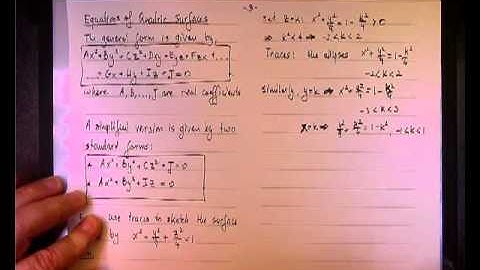 Equations of Quadric Surfaces
The general form is given by:
Ax² + By² + Cz² + Dxy + Eyz + Fxz + ...
... + Gx + Hy + Iz + J = 0
where A, B, ..., J are real coefficients
A simplified version is given by two
standard forms:
• Ax² + By² + Cz² + J = 0
• Ax² + By² + Iz = 0
use traces to sketch the surface
by x² + y²/9 + z²/4 = 1
- 3 -
Set z = k: x² + y²/9 = 1 - k²/4 > 0
⇒ k² < 4 ⇒ -2 < k < 2
Traces: the ellipses x² + y²/9 = 1 - k²/4
-2 < k < 2
Similarly, y = k ⇒ x² + z²/4 = 1 - k²/9
-3 < k < 3
x = k ⇒ y²/9 + z²/4 = 1 - k², -1 < k < 1